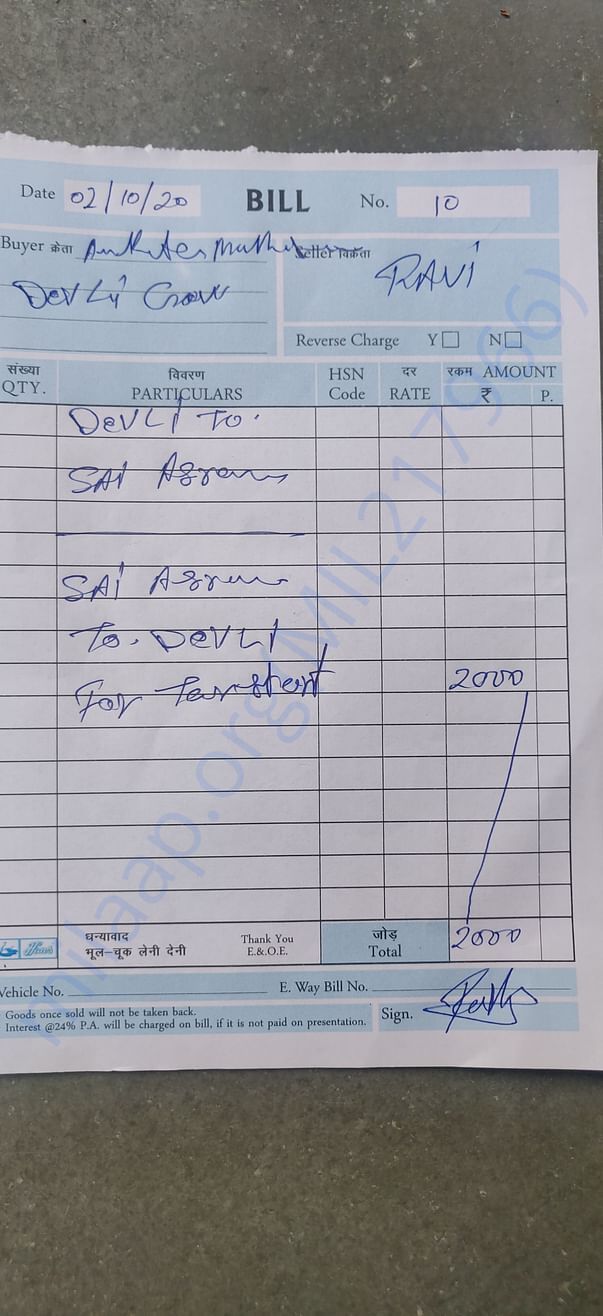 Date 02/10/20 BILL No. 10
Buyer क्रेता
Seller विक्रेता RAVI
DEVLI
Reverse Charge Y N
संख्या विवरण HSN दर रकम AMOUNT
QTY. PARTICULARS Code RATE ₹ P.
DEVLI TO.
SAI
SAI
To. DEVLI
For 2000
धन्यावाद Thank You जोड़ 2000
भूल-चूक लेनी देनी E.&O.E. Total
Vehicle No. E. Way Bill No.
Goods once sold will not be taken back. Sign.
Interest @24% P.A. will be charged on bill, if it is not paid on presentation.
milaap.org(MIL217966)